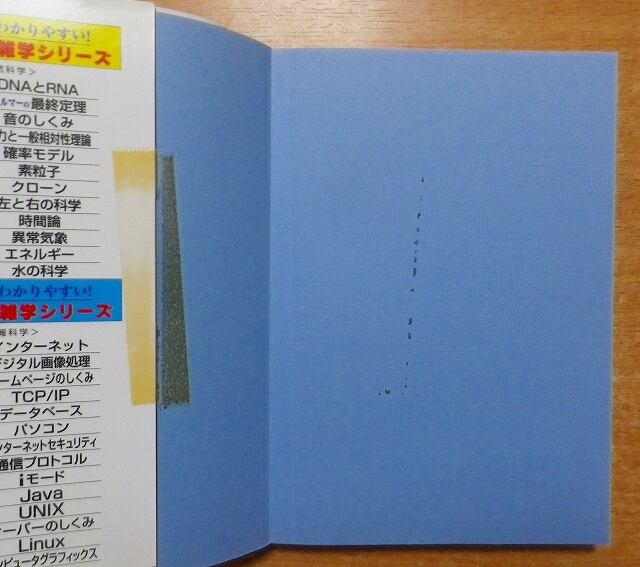 わかりやすい!
雑学シリーズ
科学>
DNAとRNA
ルマーの最終定理
音のしくみ
力と一般相対性理論
確率モデル
素粒子
クローン
左と右の科学
時間論
異常気象
エネルギー
水の科学
わかりやすい!
雑学シリーズ
報科学>
インターネット
デジタル画像処理
ームページのしくみ
TCP/IP
データベース
パソコン
ンターネットセキュリティ
通信プロトコル
iモード
Java
UNIX
ーバーのしくみ
Linux
ンピュータグラフィックス